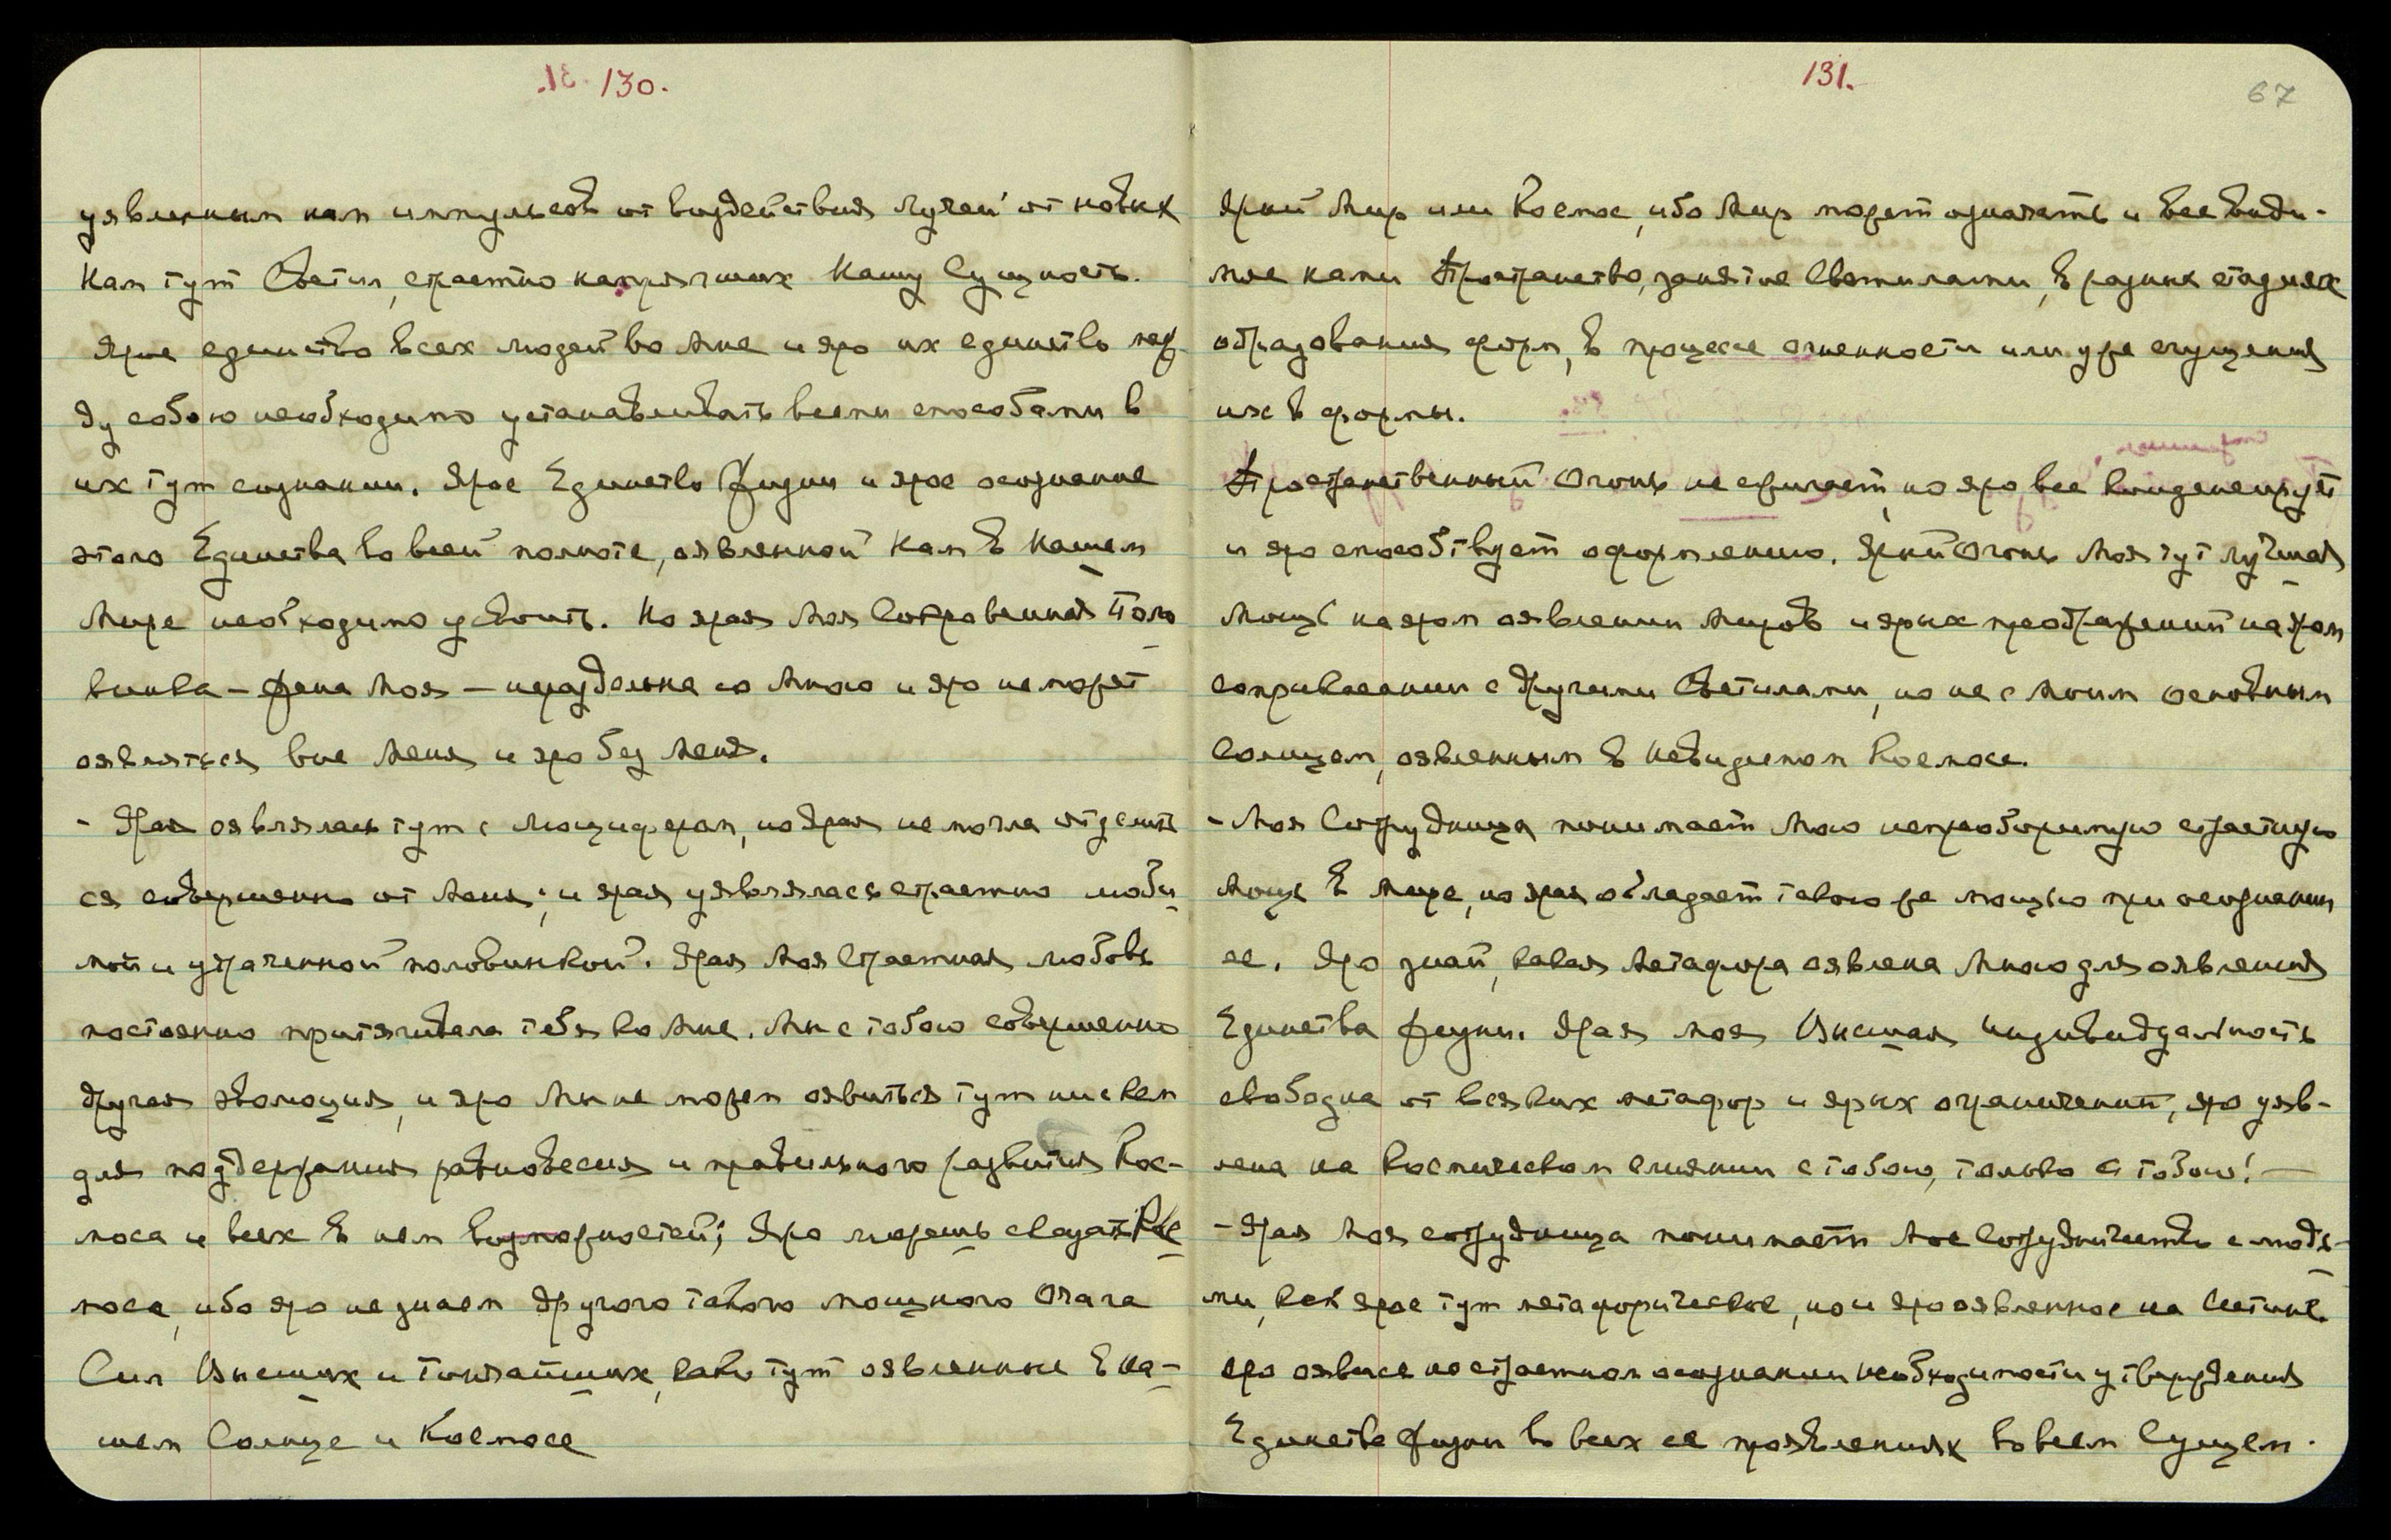 130.
уявленным нам импульсов от воздействия Лучей от новых
нам тут Светил, страстно напрягших нашу Сущность.
Ярое единство всех людей во Мне и яро их единство меж
ду собою необходимо устанавливать всеми способами в
их тут сознании. Ярое Единство Жизни и ярое осознание
этого Единства во всей полноте, оявленной нам в нашем
Мире необходимо усвоить. Но ярая Моя Сокровенная Поло
винка – Жена Моя – нераздельна со Мною и яро не может
оявляться вне Меня и яро без Меня.
- Ярая оявлялась тут с Люцифером, но ярая не могла отделить
ся совершенно от Меня; и ярая уявлялась страстно люби
мой и утраченной половинкой. Ярая Моя Страстная любовь
постоянно притягивала тебя ко Мне. Мы с тобою совершенно
другая эволюция, и яро Мы не можем оявиться тут ни с кем
для поддержания равновесия и правильного развития Кос-
моса и всех в нем возможностей; Яро можешь сказать Кос
моса, ибо яро не знаем другого такого мощного Очага
Сил Высших и Тончайших, как тут оявленные в на-
шем Солнце и Космосе
131.
67
Ярый Мир или Космос, ибо Мир может означать и все види-
мое нами Пространство, занятое Светилами, в разных стадиях
образования форм, в процессе огненности или уже сгущения
их в формы.
Пространственный Огонь не сжигает, но яро все конденсирует
и яро способствует оформлению. Ярый Огонь Моя тут лучшая
Мощь на яром оявлении Миров и ярых преображений на яром
соприкасании с другими Светилами, но не с Моим основным
Солнцем, оявленным в Невидимом Космосе.
- Моя Сотрудница понимает Мою непреоборимую страстную
Мощь в Мире, но ярая обладает такою же мощью при осознании
ее. Яро знай, какая Метафора оявлена Мною для оявления
Единства Жизни. Ярая моя Высшая Индивидуальность
свободна от всяких метафор и ярых ограничений, яро уяв-
лена на Космическом слиянии с тобою, только с тобою! —
- Ярая Моя сотрудница понимает Мое Сотрудничество с людь-
ми, как ярое тут метафорическое, но и яро оявленное на Истине.
яро оявись на страстном осознании необходимости утверждения
Единства Жизни во всех ее проявлениях во всем Сущем.